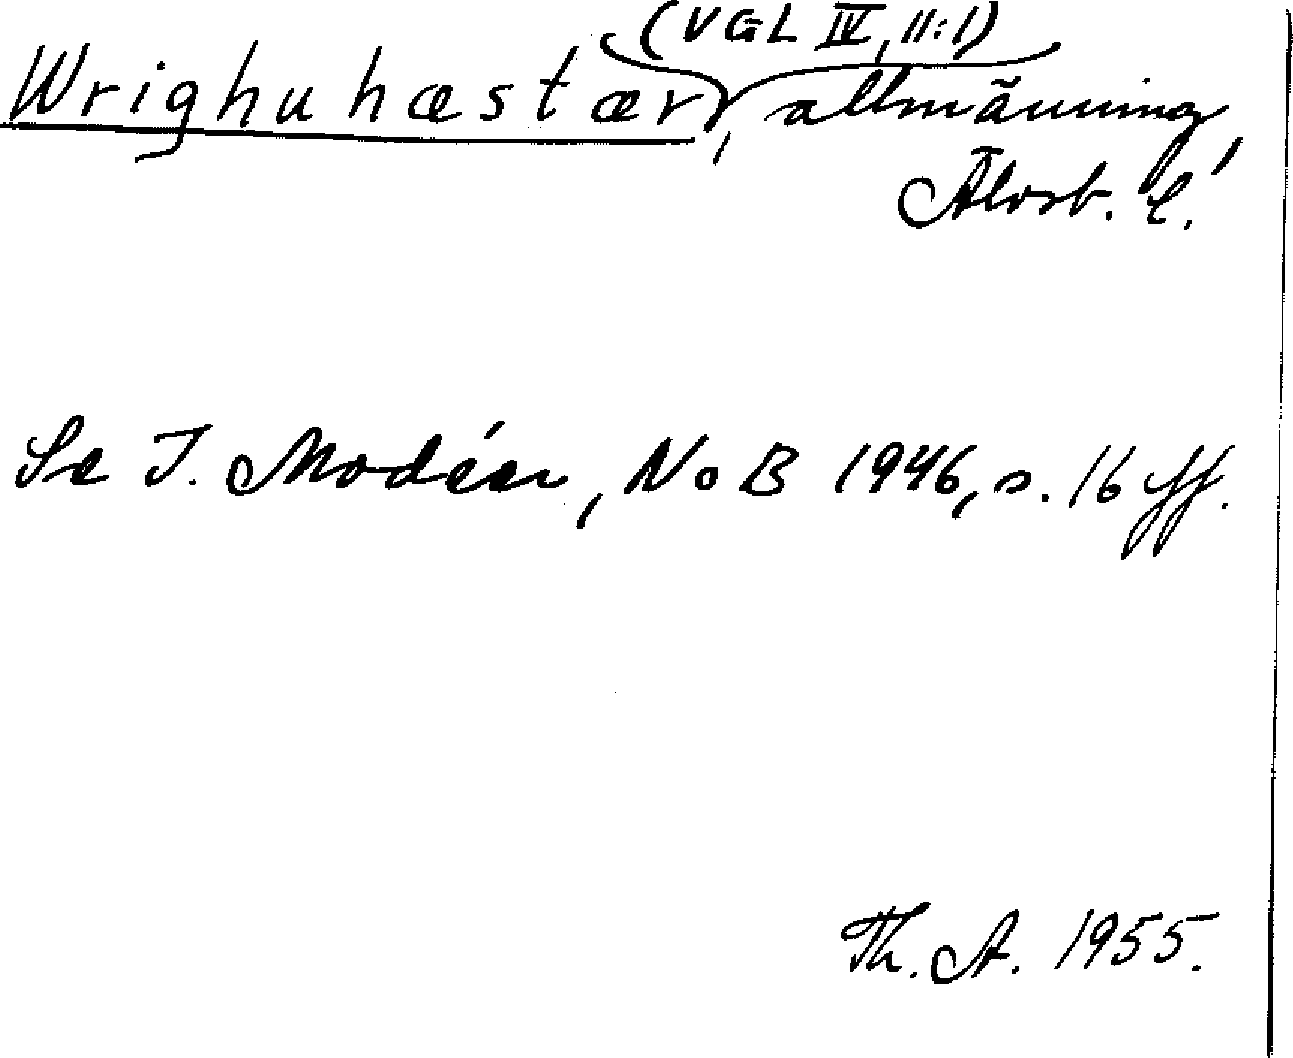 (VGL IV, 11:1)
Wrighuhæstær, allmänning,
Älvsb. l.
Se I. Modéer, NoB 1946, s. 16 ff.
Th. A. 1955.